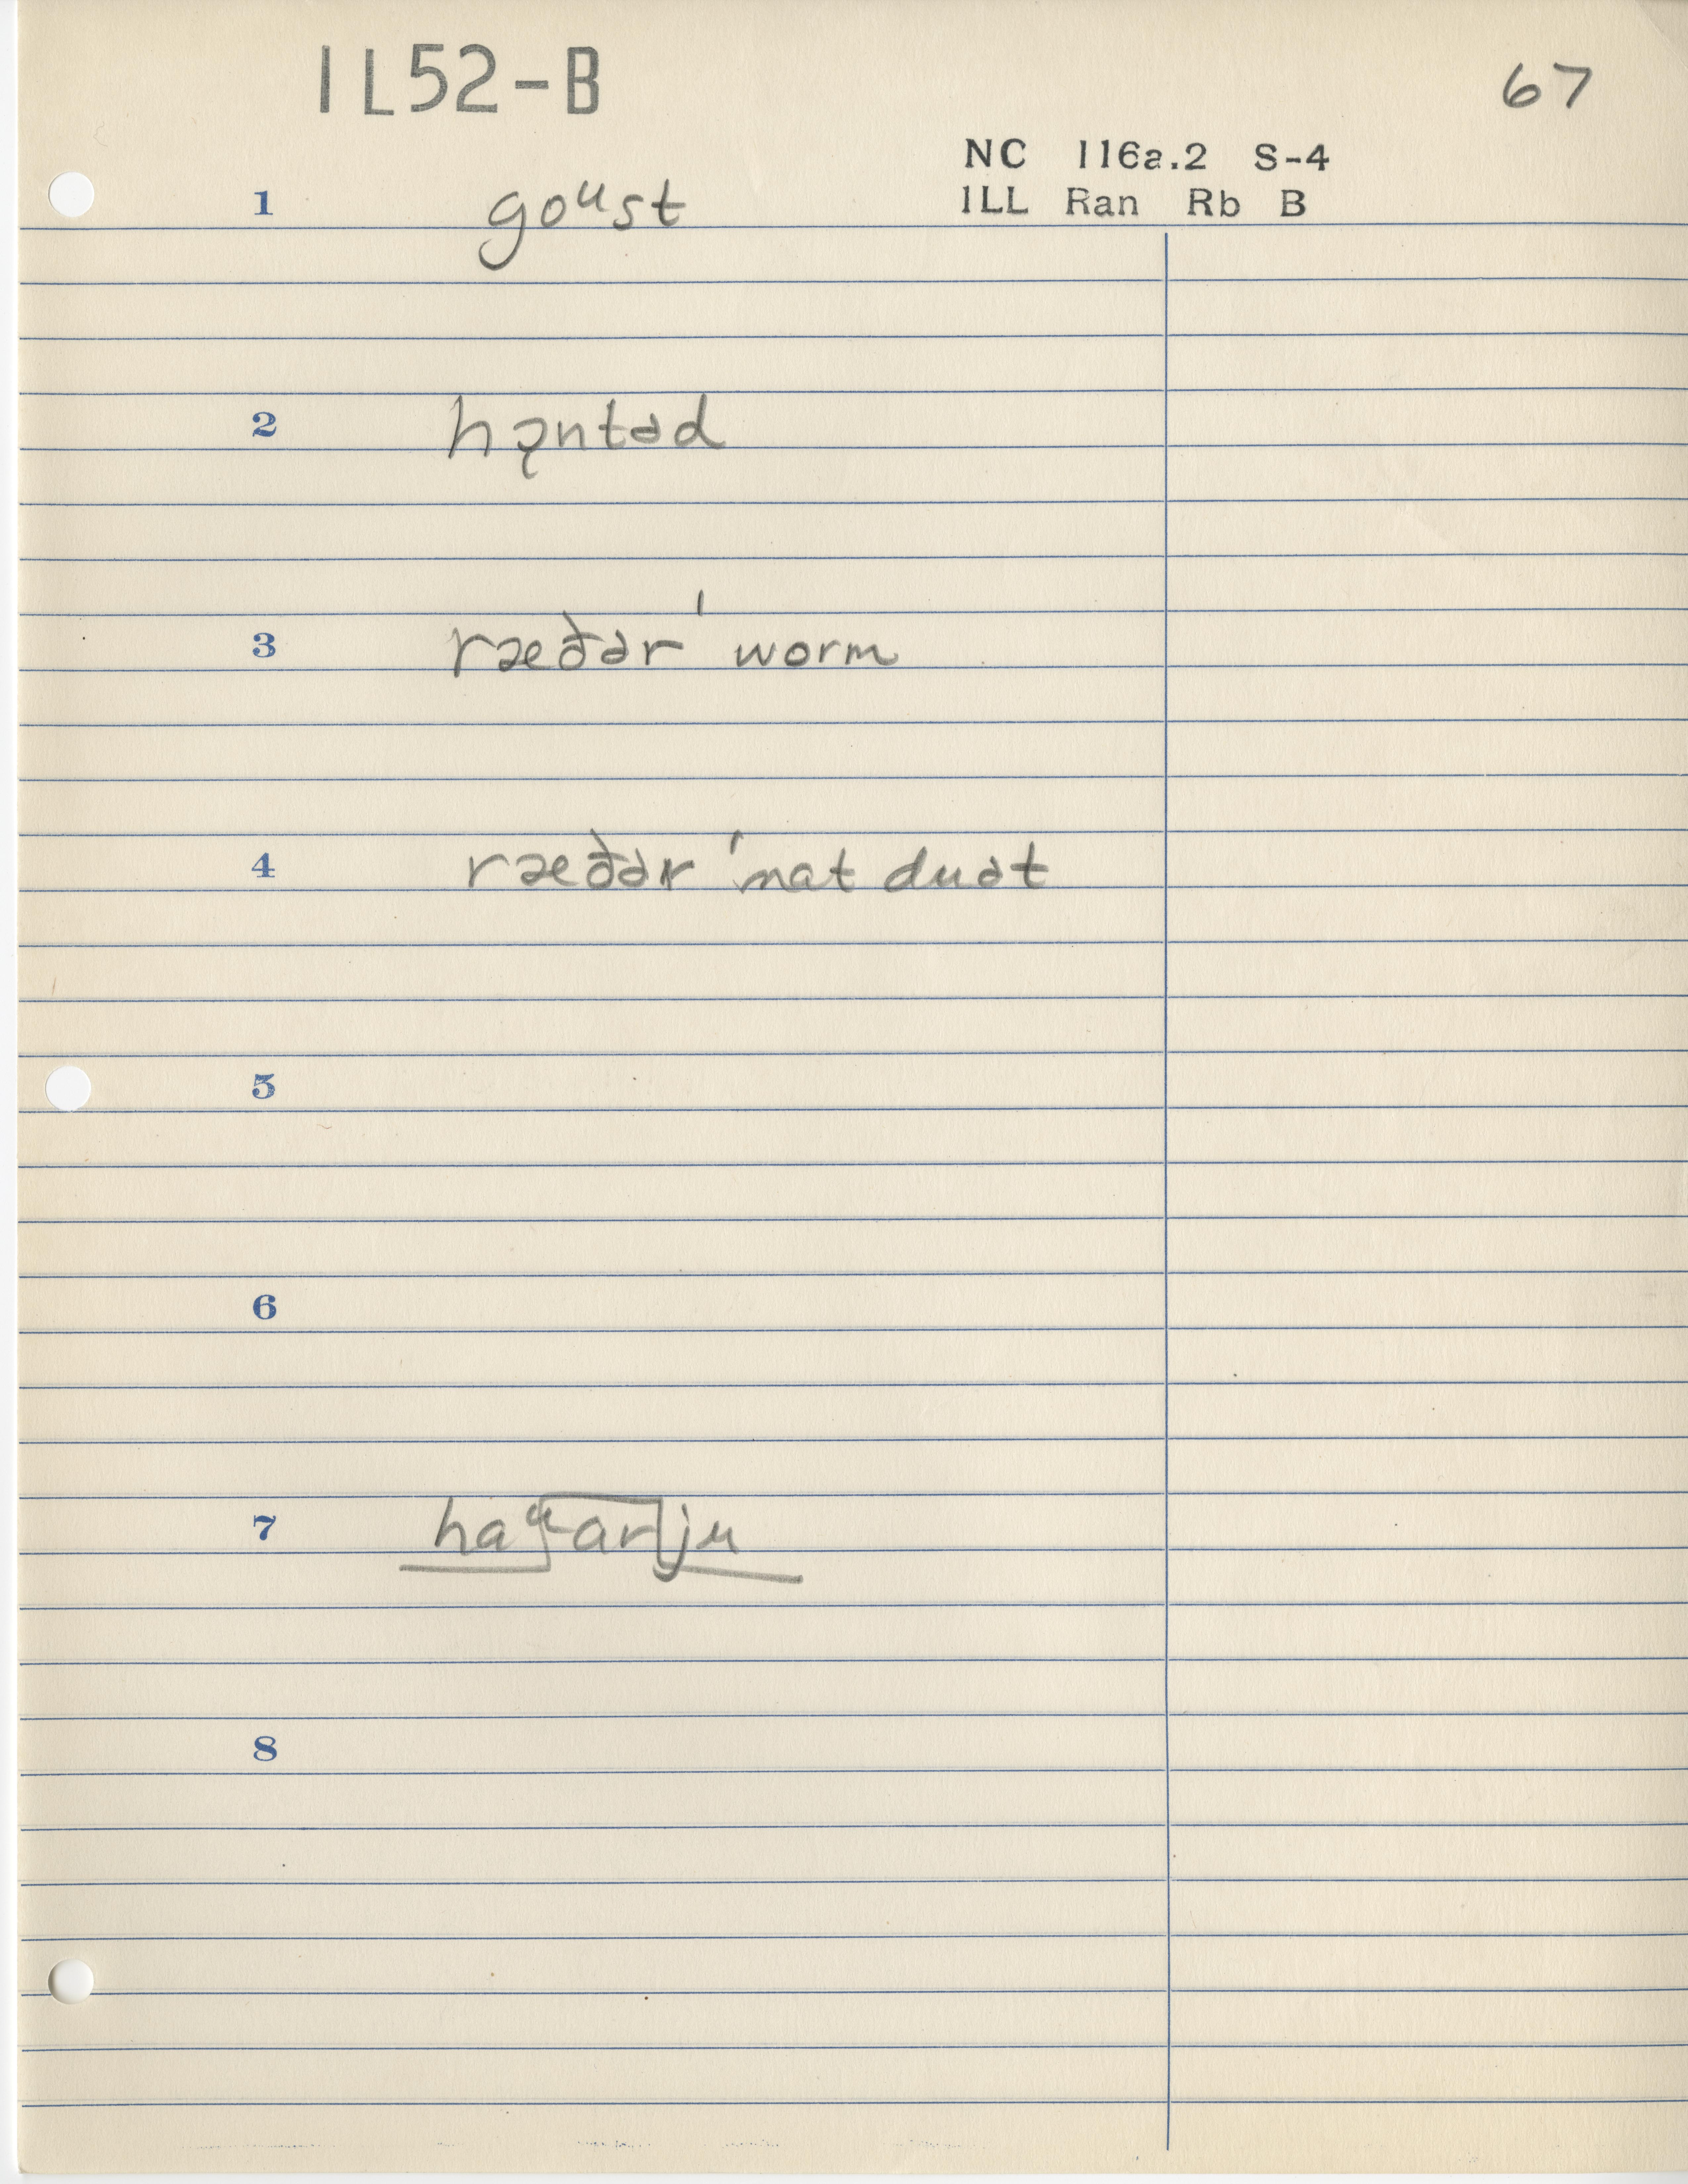 IL52-B
67
NC 116a.2 S-4
1 goᵘst
ILL Ran Rb B
2 hɔ̨ntəd
3 ræðər ˈworm
4 ræðər ˈnat duət
5
6
7 haᵘarju
8